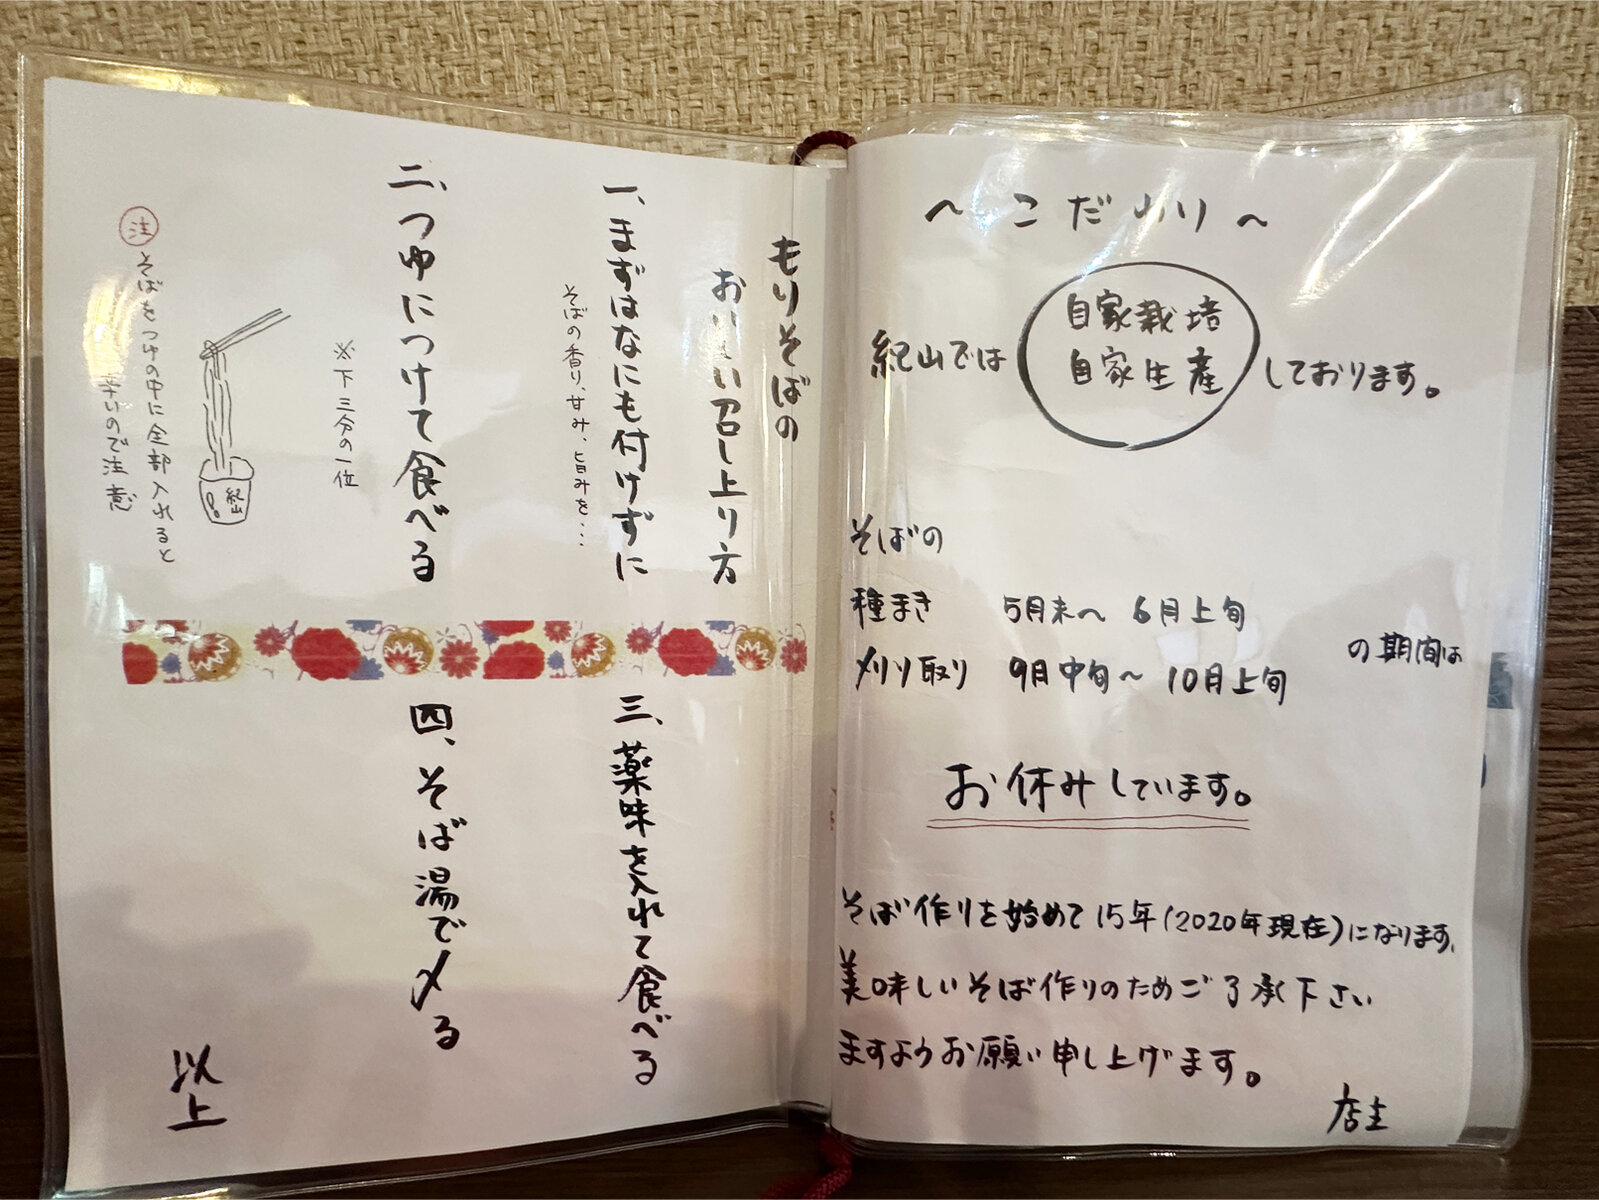 〜こだわり〜
紀山では
自家栽培
自家生産
しております。
そばの
種まき 5月末〜6月上旬
刈り取り 9月中旬〜10月上旬
の期間は
お休みしています。
そば作りを始めて15年(2020年現在)になります。
美味しいそば作りのためご了承下さい
ますようお願い申し上げます。
店主
もりそばの
おいしい召し上り方
一、まずはなにも付けずに
そばの香り、甘み、旨みを…
二、つゆにつけて食べる
※下三分の一位
紀山
注 そばをつゆの中に全部入れると
辛いので注意
三、薬味を入れて食べる
四、そば湯で〆る
以上